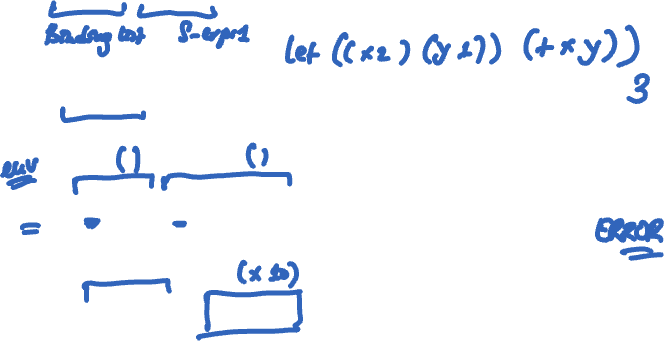 Binding list S-expr1
(let ((x 2) (y 1)) (+ x y))
3
() ()
env
= -
(x 10)
ERROR